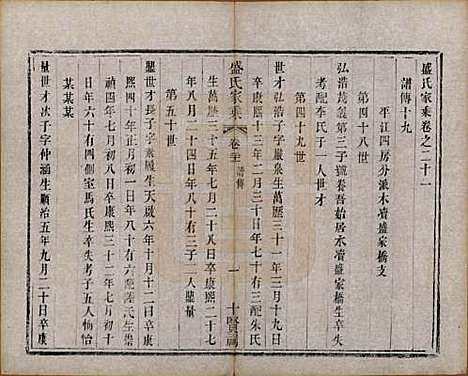 盛氏家乘卷之二十一
譜傳十九
平江四房分派木瀆盛家橋支
第四十八世
弘浩茂叢第三子號養吾始居木瀆盛家橋生
考配李氏子一人世才
第四十九世
世才弘浩子字巖泉生萬歷三十一年三月十九日
卒康熙十三年二月三十日年七十有三配朱氏
生萬歷三十五年七月六日卒康熙二十七
年八月二十四日年八十有二子二人
第五十世
世才長子字永履生天啟六年十月十二日卒康
熙四十年正月初一日年八十有六配陸氏生崇
禎四年七月初八日卒康熙三十二年七月初七
日年六十有四側室馬氏生卒失考子五人
某某某
世才次子字仲涵生順治五年九月二十日卒康
盛氏家乘
卷二十一
譜傳
一
十賢祠